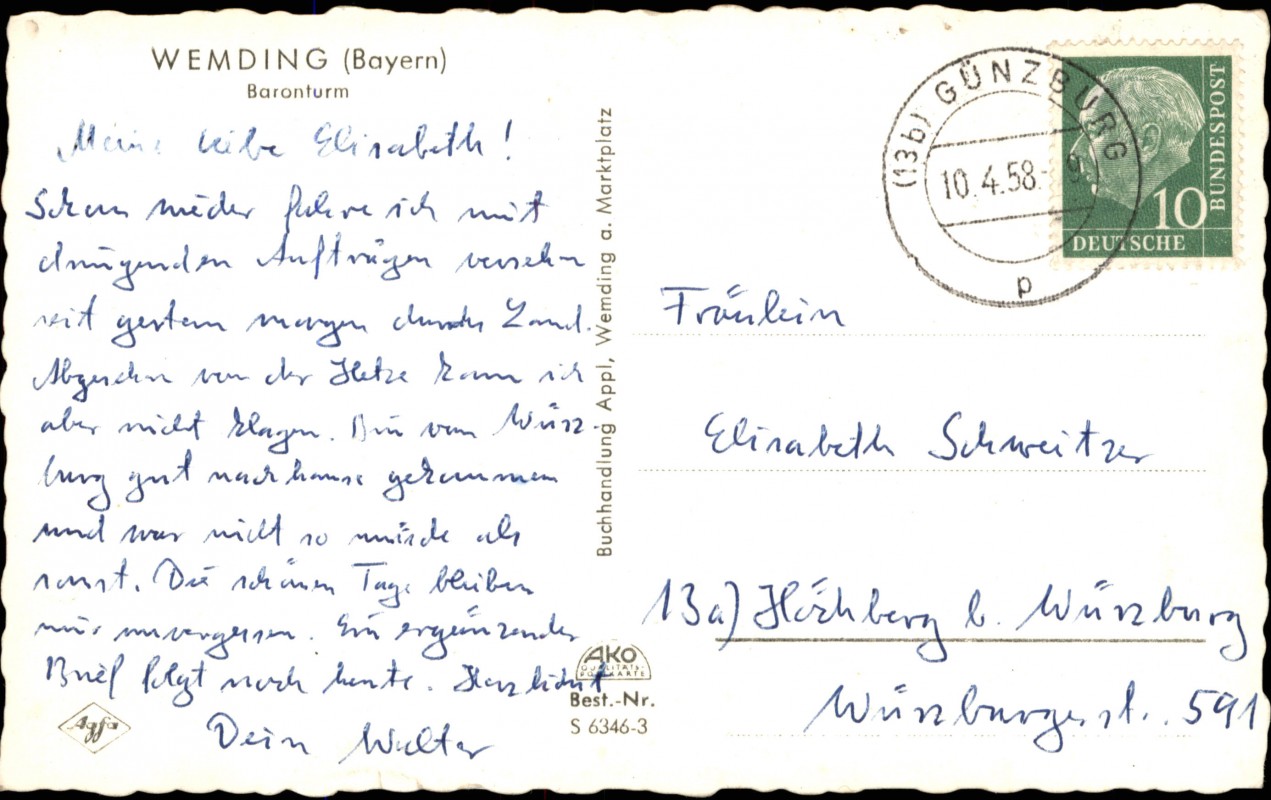 WEMDING (Bayern)
Baronturm
Meine liebe Elisabeth!
Schon wieder fahre ich mit
dringenden Aufträgen versehen
seit gestern morgen durchs Land.
Abgesehen von der Hetze kann ich
aber nicht klagen. Bin von Würz-
burg gut nachhause gekommen
und war nicht so müde als
sonst. Die schönen Tage bleiben
mir unvergessen. Ein ergänzender
Brief folgt noch heute. Herzlichst
Dein Walter
Agfa
Buchhandlung Appl, Wemding a. Marktplatz
AKO
QUALITÄTS-
POSTKARTE
Best.-Nr.
S 6346-3
(13b) GÜNZBURG
10.4.58.-9
p
10
DEUTSCHE
BUNDESPOST
Fräulein
Elisabeth Schweitzer
13a) Höchberg b. Würzburg
Würzburgerstr. 591